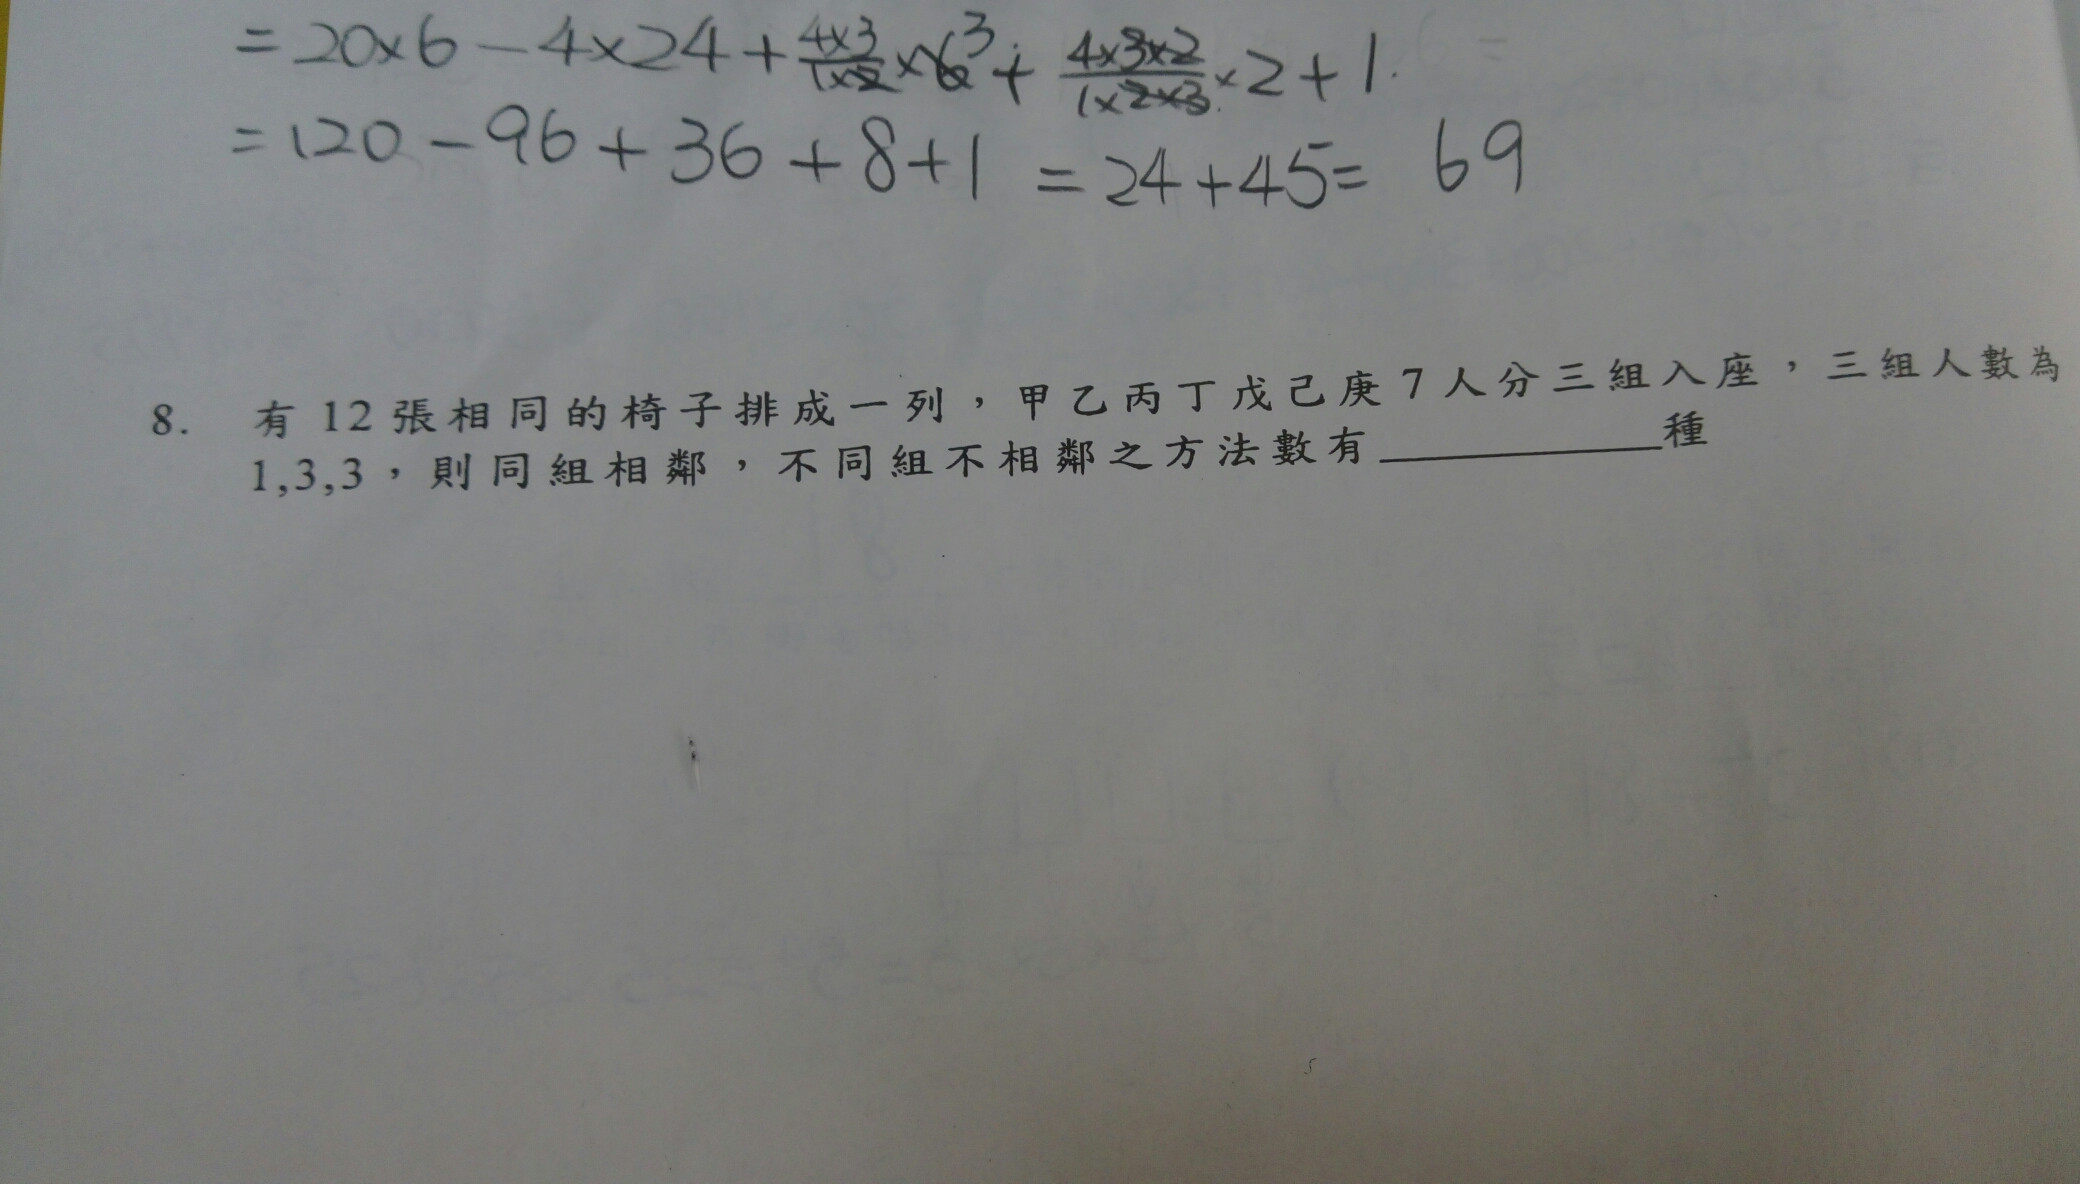 = 20×6 - 4×24 + 4×3/1×2 × 6 3 + 4×3×2/1×2×3 × 2 + 1.
= 120 - 96 + 36 + 8 + 1 = 24 + 45 = 69
8. 有 12 張相同的椅子排成一列，甲乙丙丁戊己庚 7 人分三組入座，三組人數為
1,3,3，則同組相鄰，不同組不相鄰之方法數有__________種